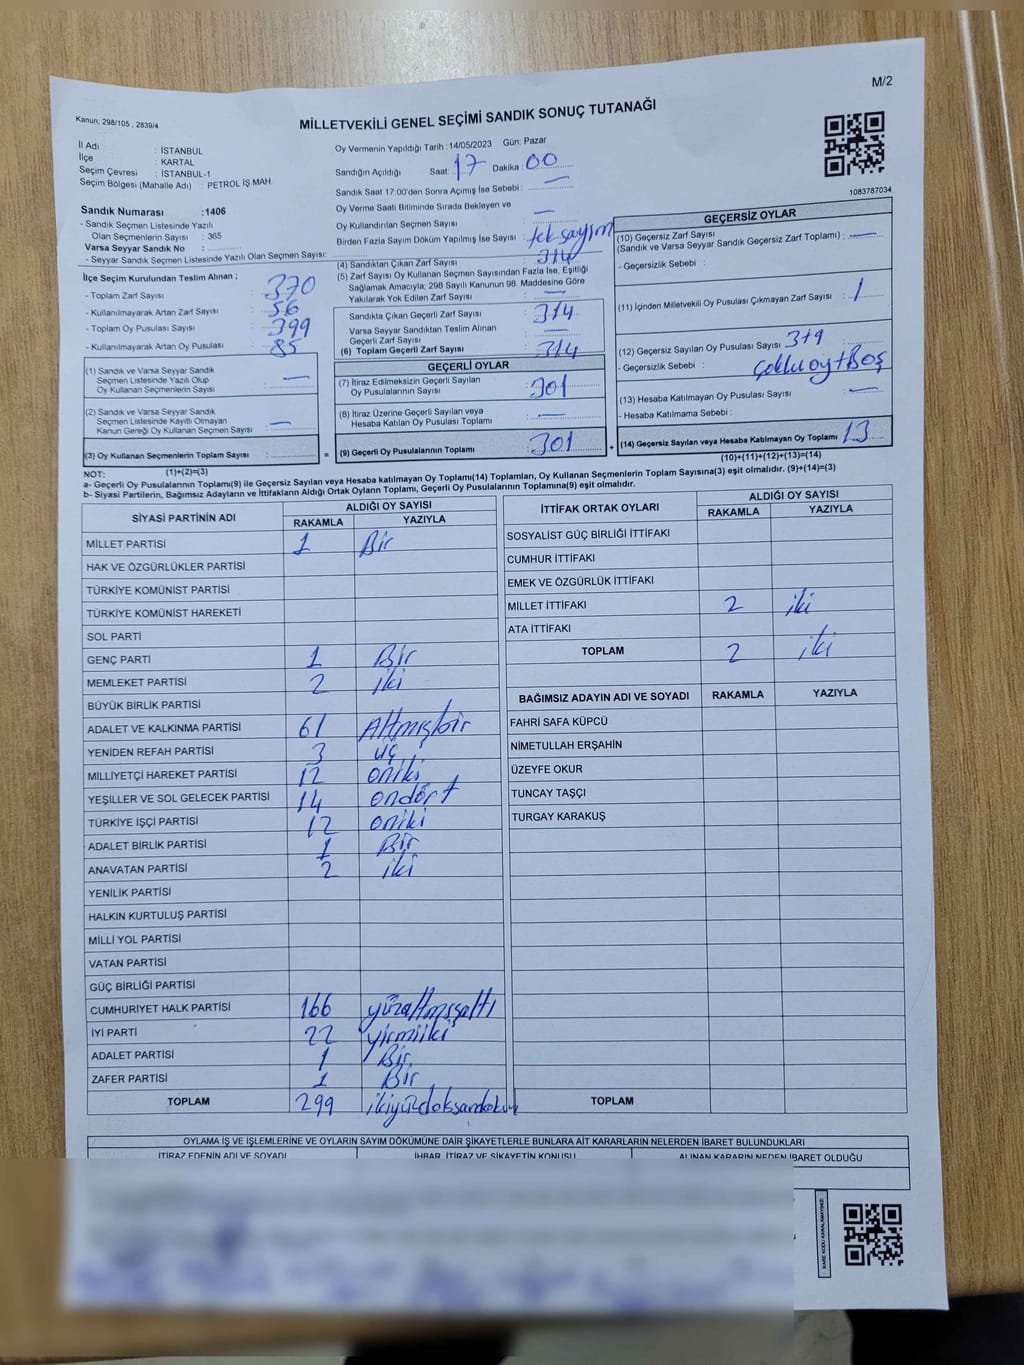 M/2
Kanun; 298/105 , 2839/4
MİLLETVEKİLİ GENEL SEÇİMİ SANDIK SONUÇ TUTANAĞI
İl Adı : İSTANBUL
İlçe : KARTAL
Seçim Çevresi : İSTANBUL-1
Seçim Bölgesi (Mahalle Adı) : PETROL İŞ MAH.
Sandık Numarası :1406
- Sandık Seçmen Listesinde Yazılı
Olan Seçmenlerin Sayısı : 365
Varsa Seyyar Sandık No :
- Seyyar Sandık Seçmen Listesinde Yazılı Olan Seçmen Sayısı:
Oy Vermenin Yapıldığı Tarih :14/05/2023 Gün: Pazar
Sandığın Açıldığı Saat: 17 Dakika: 00
Sandık Saat 17:00'den Sonra Açılmış İse Sebebi : —
Oy Verme Saati Bitiminde Sırada Bekleyen ve
Oy Kullandırılan Seçmen Sayısı : —
Birden Fazla Sayım Döküm Yapılmış İse Sayısı : tek sayım
1083787034
İlçe Seçim Kurulundan Teslim Alınan ;
- Toplam Zarf Sayısı : 370
- Kullanılmayarak Artan Zarf Sayısı : 56
- Toplam Oy Pusulası Sayısı : 399
- Kullanılmayarak Artan Oy Pusulası : 85
(1) Sandık ve Varsa Seyyar Sandık
Seçmen Listesinde Yazılı Olup
Oy Kullanan Seçmenlerin Sayısı : —
(2) Sandık ve Varsa Seyyar Sandık
Seçmen Listesinde Kayıtlı Olmayan
Kanun Gereği Oy Kullanan Seçmen Sayısı : —
(3) Oy Kullanan Seçmenlerin Toplam Sayısı :
(1)+(2)=(3)
(4) Sandıktan Çıkan Zarf Sayısı : 314
(5) Zarf Sayısı Oy Kullanan Seçmen Sayısından Fazla İse, Eşitliği
Sağlamak Amacıyla; 298 Sayılı Kanunun 98. Maddesine Göre
Yakılarak Yok Edilen Zarf Sayısı : —
Sandıkta Çıkan Geçerli Zarf Sayısı : 314
Varsa Seyyar Sandıktan Teslim Alınan
Geçerli Zarf Sayısı : —
(6) Toplam Geçerli Zarf Sayısı : 314
GEÇERLİ OYLAR
(7) İtiraz Edilmeksizin Geçerli Sayılan
Oy Pusulalarının Sayısı : 301
(8) İtiraz Üzerine Geçerli Sayılan veya
Hesaba Katılan Oy Pusulası Toplamı : —
= (9) Geçerli Oy Pusulalarının Toplamı : 301 +
GEÇERSİZ OYLAR
(10) Geçersiz Zarf Sayısı
(Sandık ve Varsa Seyyar Sandık Geçersiz Zarf Toplamı) : —
- Geçersizlik Sebebi :
(11) İçinden Milletvekili Oy Pusulası Çıkmayan Zarf Sayısı : 1
(12) Geçersiz Sayılan Oy Pusulası Sayısı : 3+9
- Geçersizlik Sebebi : Çoklu oy+Boş
(13) Hesaba Katılmayan Oy Pusulası Sayısı : —
- Hesaba Katılmama Sebebi :
(14) Geçersiz Sayılan veya Hesaba Katılmayan Oy Toplamı : 13
(10)+(11)+(12)+(13)=(14)
NOT:
a- Geçerli Oy Pusulalarının Toplamı(9) ile Geçersiz Sayılan veya Hesaba katılmayan Oy Toplamı(14) Toplamları, Oy Kullanan Seçmenlerin Toplam Sayısına(3) eşit olmalıdır. (9)+(14)=(3)
b- Siyasi Partilerin, Bağımsız Adayların ve İttifakların Aldığı Ortak Oyların Toplamı, Geçerli Oy Pusulalarının Toplamına(9) eşit olmalıdır.
SİYASİ PARTİNİN ADI ALDIĞI OY SAYISI
RAKAMLA YAZIYLA
MİLLET PARTİSİ 1 Bir
HAK VE ÖZGÜRLÜKLER PARTİSİ
TÜRKİYE KOMÜNİST PARTİSİ
TÜRKİYE KOMÜNİST HAREKETİ
SOL PARTİ
GENÇ PARTİ 1 Bir
MEMLEKET PARTİSİ 2 iki
BÜYÜK BİRLİK PARTİSİ
ADALET VE KALKINMA PARTİSİ 61 Altmışbir
YENİDEN REFAH PARTİSİ 3 üç
MİLLİYETÇİ HAREKET PARTİSİ 12 oniki
YEŞİLLER VE SOL GELECEK PARTİSİ 14 ondört
TÜRKİYE İŞÇİ PARTİSİ 12 oniki
ADALET BİRLİK PARTİSİ 1 Bir
ANAVATAN PARTİSİ 2 iki
YENİLİK PARTİSİ
HALKIN KURTULUŞ PARTİSİ
MİLLİ YOL PARTİSİ
VATAN PARTİSİ
GÜÇ BİRLİĞİ PARTİSİ
CUMHURİYET HALK PARTİSİ 166 yüzaltmışaltı
İYİ PARTİ 22 yirmiiki
ADALET PARTİSİ 1 Bir
ZAFER PARTİSİ 1 Bir
TOPLAM 299 ikiyüzdoksandokuz
İTTİFAK ORTAK OYLARI ALDIĞI OY SAYISI
RAKAMLA YAZIYLA
SOSYALİST GÜÇ BİRLİĞİ İTTİFAKI
CUMHUR İTTİFAKI
EMEK VE ÖZGÜRLÜK İTTİFAKI
MİLLET İTTİFAKI 2 iki
ATA İTTİFAKI
TOPLAM 2 iki
BAĞIMSIZ ADAYIN ADI VE SOYADI RAKAMLA YAZIYLA
FAHRİ SAFA KÜPCÜ
NİMETULLAH ERŞAHİN
ÜZEYFE OKUR
TUNCAY TAŞÇI
TURGAY KARAKUŞ
TOPLAM
OYLAMA İŞ VE İŞLEMLERİNE VE OYLARIN SAYIM DÖKÜMÜNE DAİR ŞİKAYETLERLE BUNLARA AİT KARARLARIN NELERDEN İBARET BULUNDUKLARI
İTİRAZ EDENİN ADI VE SOYADI İHBAR, İTİRAZ VE ŞİKAYETİN KONUSU ALINAN KARARIN NEDEN İBARET OLDUĞU
KARE KODU KARALAMAYINIZ!